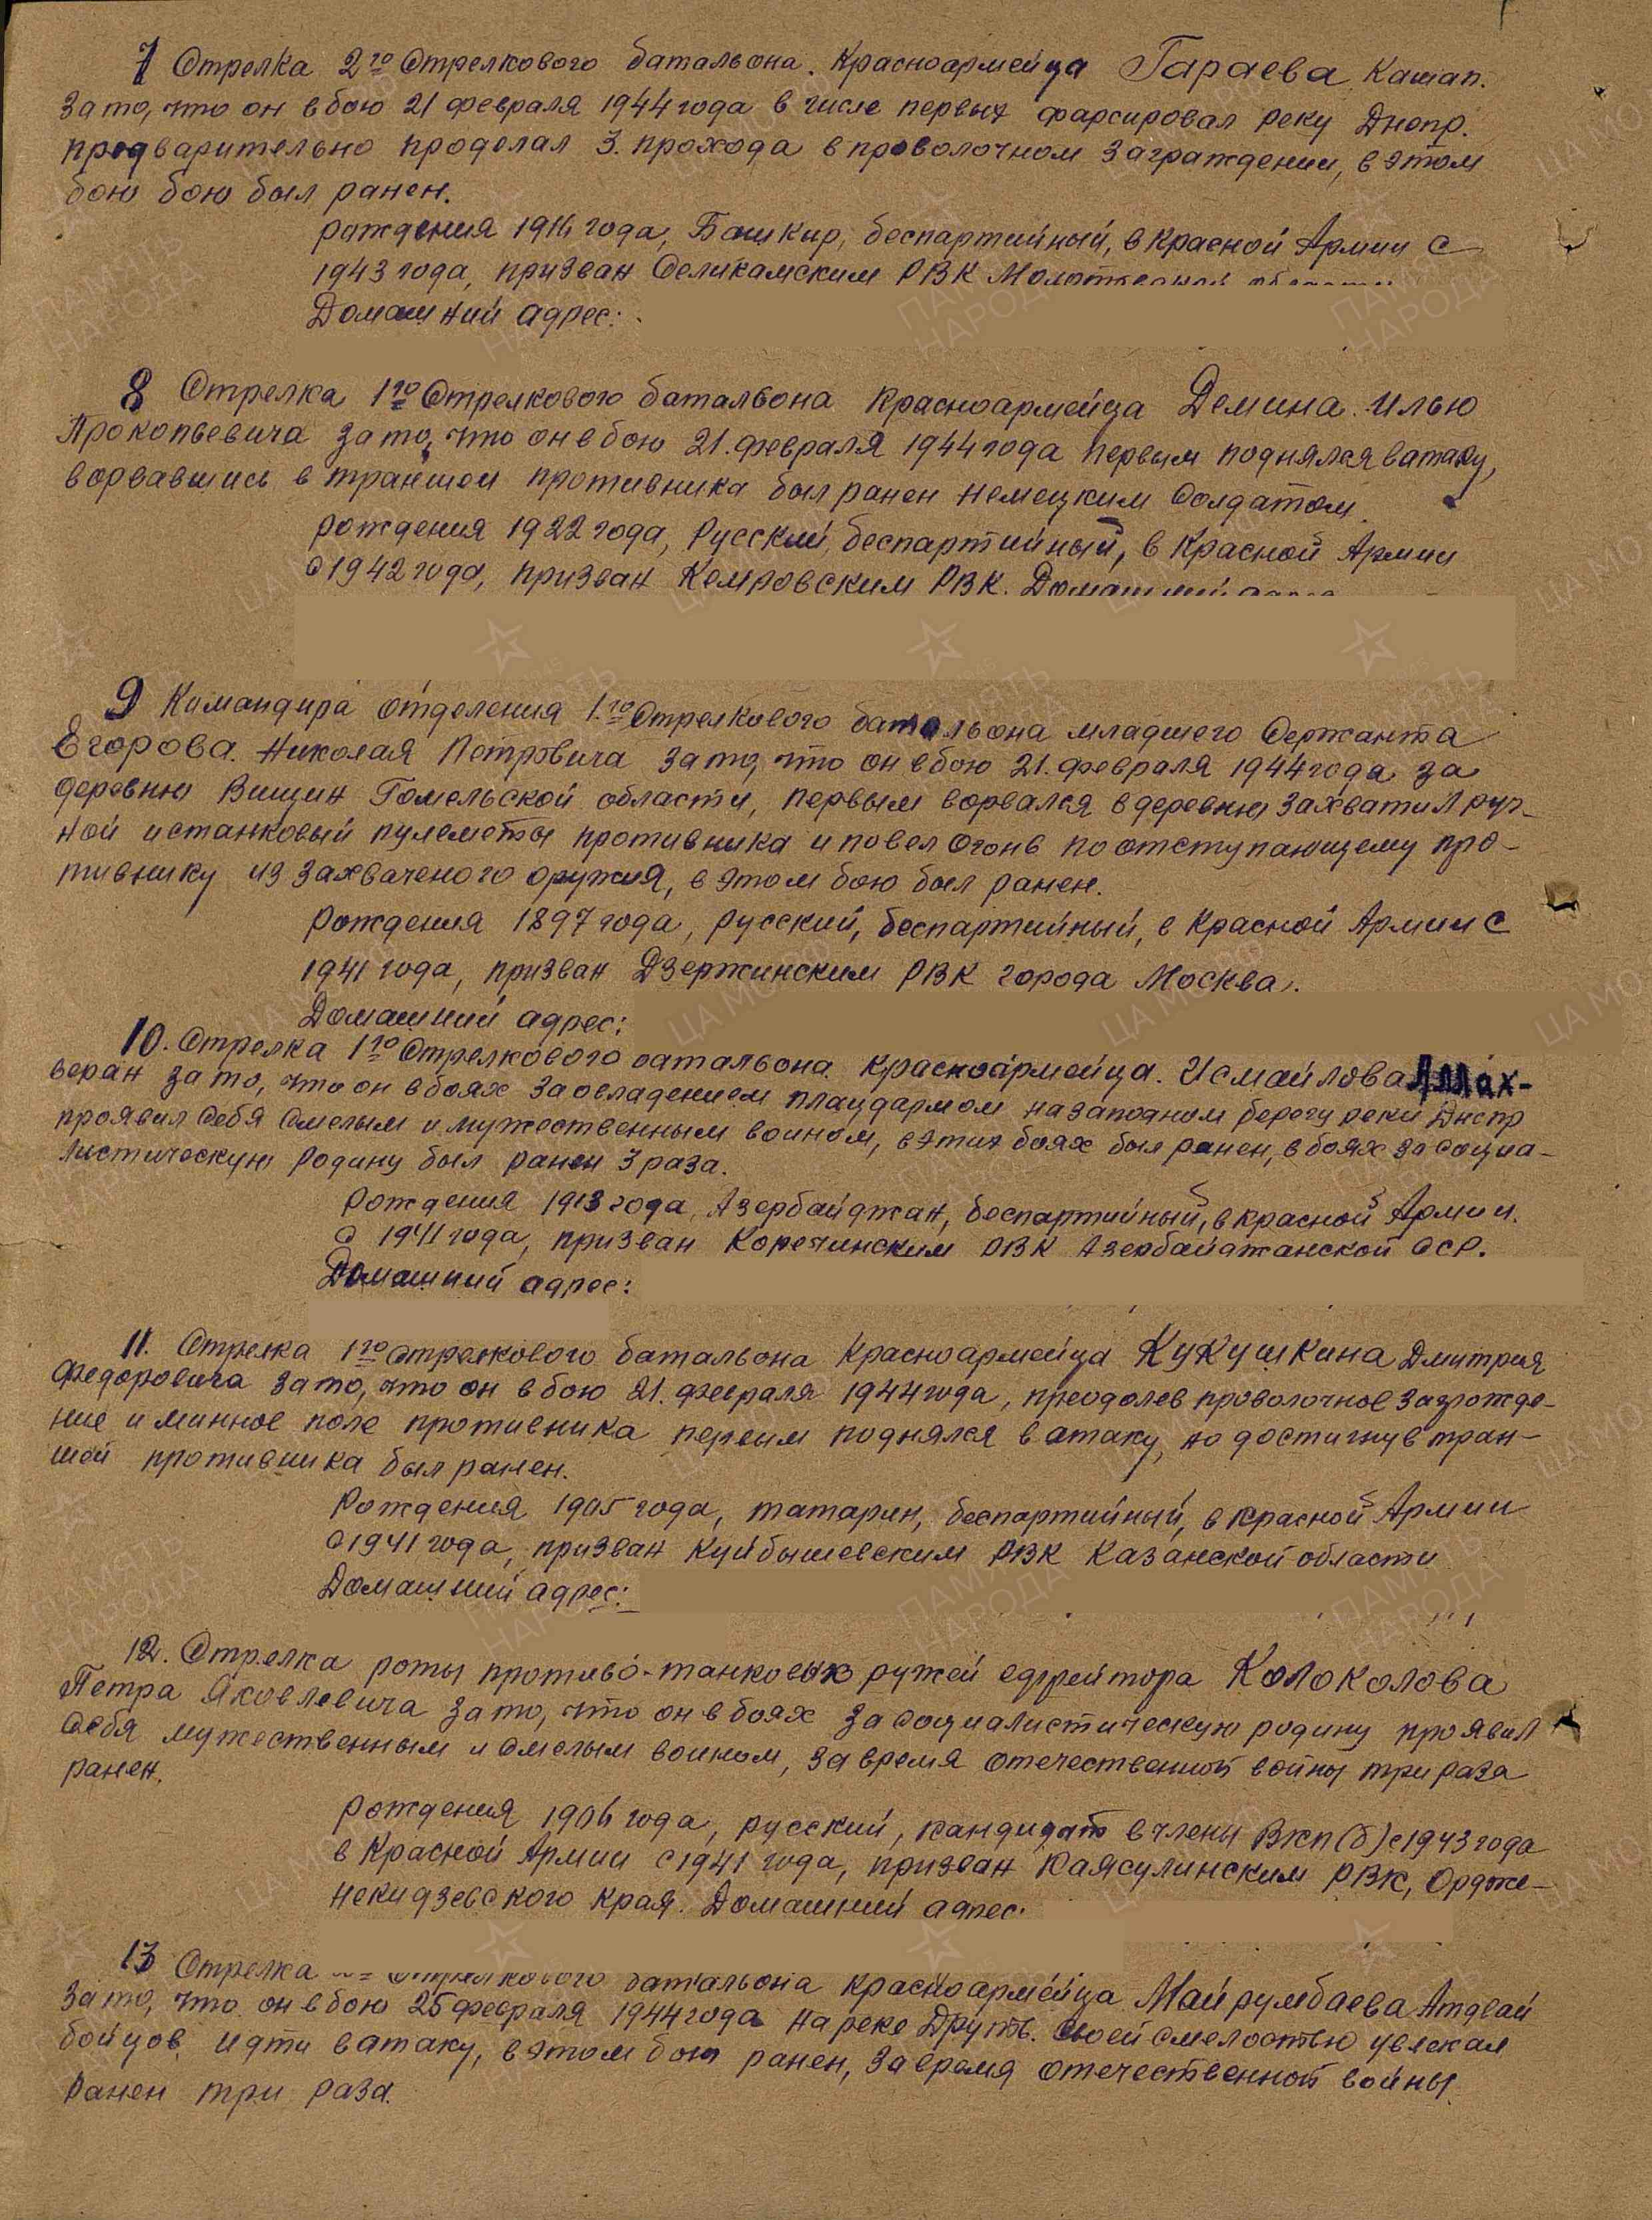 7 Стрелка 2го Стрелкового батальона. Красноармейца Гараева Кашап.
За то, что он в бою 21 февраля 1944 года в числе первых фарсировал реку Днепр.
предварительно проделал 3. прохода в проволочном заграждении, в этом
бою бою был ранен.
рождения 1916 года, Башкир, беспартийный, в Красной Армии с
1943 года, призван Соликамским РВК Молотовской области
Домашний адрес:
8 Стрелка 1го Стрелкового батальона Красноармейца Демина. Илью
Прокопьевича за то, что он в бою 21. февраля 1944 года первым поднялся в атаку,
ворвавшись в траншеи противника был ранен немецким солдатом.
рождения 1922 года, Русский, беспартийный, в Красной Армии
с 1942 года, призван Кемровским РВК. Домашний адрес
9 Командира отделения 1.го Стрелкового батальона младшего Сержанта
Егорова. Николая Петровича за то, что он в бою 21. февраля 1944 года за
деревню Вищин Гомельской области, первым ворвался в деревню захватил руч-
ной и станковый пулеметы противника и повел огонь по отступающему про-
тивнику из захваченого оружия, в этом бою был ранен.
Рождения 1897 года, русский, беспартийный, в Красной Армии с
1941 года, призван Дзержинским РВК города Москва.
Домашний адрес:
10. Стрелка 1го Стрелкового батальона Красноармейца. Исмайлова Аллах-
веран за то, что он в боях за овладением плацдармом на западном берегу реки Днепр
проявил себя смелым и мужественным воином, в этих боях был ранен, в боях за социа-
листическую родину был ранен 3 раза.
Рождения 1913 года, Азербайджан, беспартийный, в красной Армии.
с 1941 года, призван Коречинским РВК Азербайджанской ССР.
Домашний адрес:
11. Стрелка 1го Стрелкового батальона Красноармейца Кукушкина Дмитрия
Федоровича за то, что он в бою 21. февраля 1944 года, преодолев проволочное загрожде-
ние и минное поле противника первым поднялся в атаку, но достигнув тран-
шей противника был ранен.
Рождения 1905 года, татарин, беспартийный, в красной Армии
с 1941 года, призван Куйбышевским РВК Казанской области
Домашний адрес:
12. Стрелка роты противо-танковых ружей ефрейтора Колоколова
Петра Яковлевича за то, что он в боях за социалистическую родину проявил
себя мужественным и смелым воином, за время отечественной войны три раза
ранен.
Рождения 1906 года, русский, кандидат в члены ВКП(б) с 1943 года
в Красной Армии с 1941 года, призван Каясулинским РВК, Орджо-
некидзевского края. Домашний адрес.
13 Стрелка Стрелкового батальона красноармейца Майрумбаева Атдвай
За то, что он в бою 25 февраля 1944 года на реке Друть. Своей смелостью увлекал
бойцов идти в атаку, в этом бою ранен, за время отечественной войны
ранен три раза.